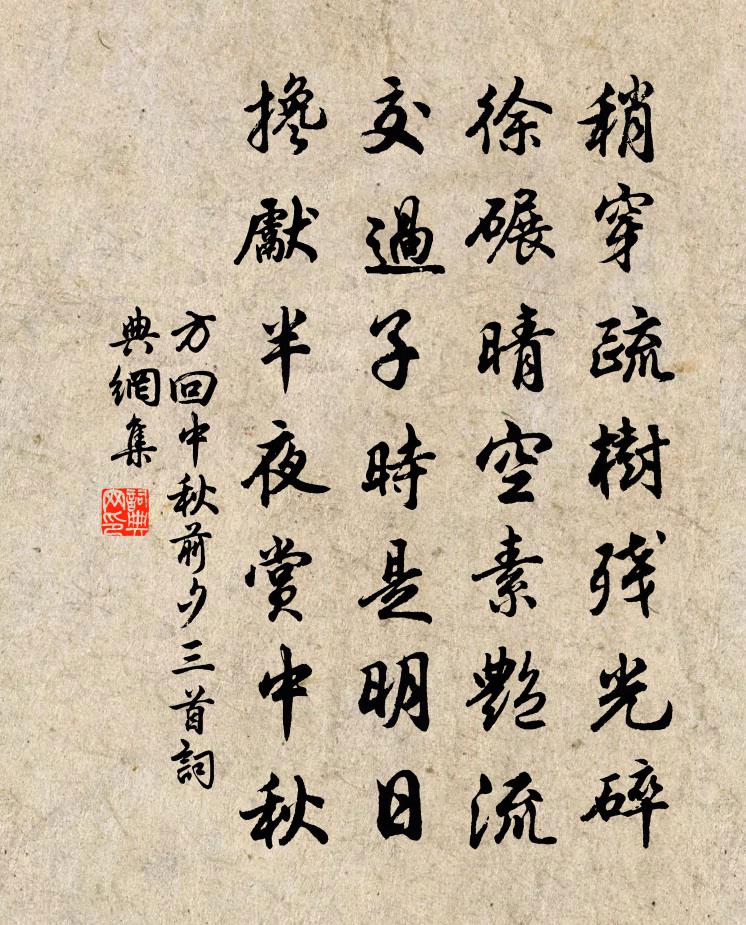 稍穿疏樹殘光碎
徐碾晴空素艷流
交過子時是明日
攙獻半夜賞中秋
方回中秋前夕三首詞
典網集
詞典
网印